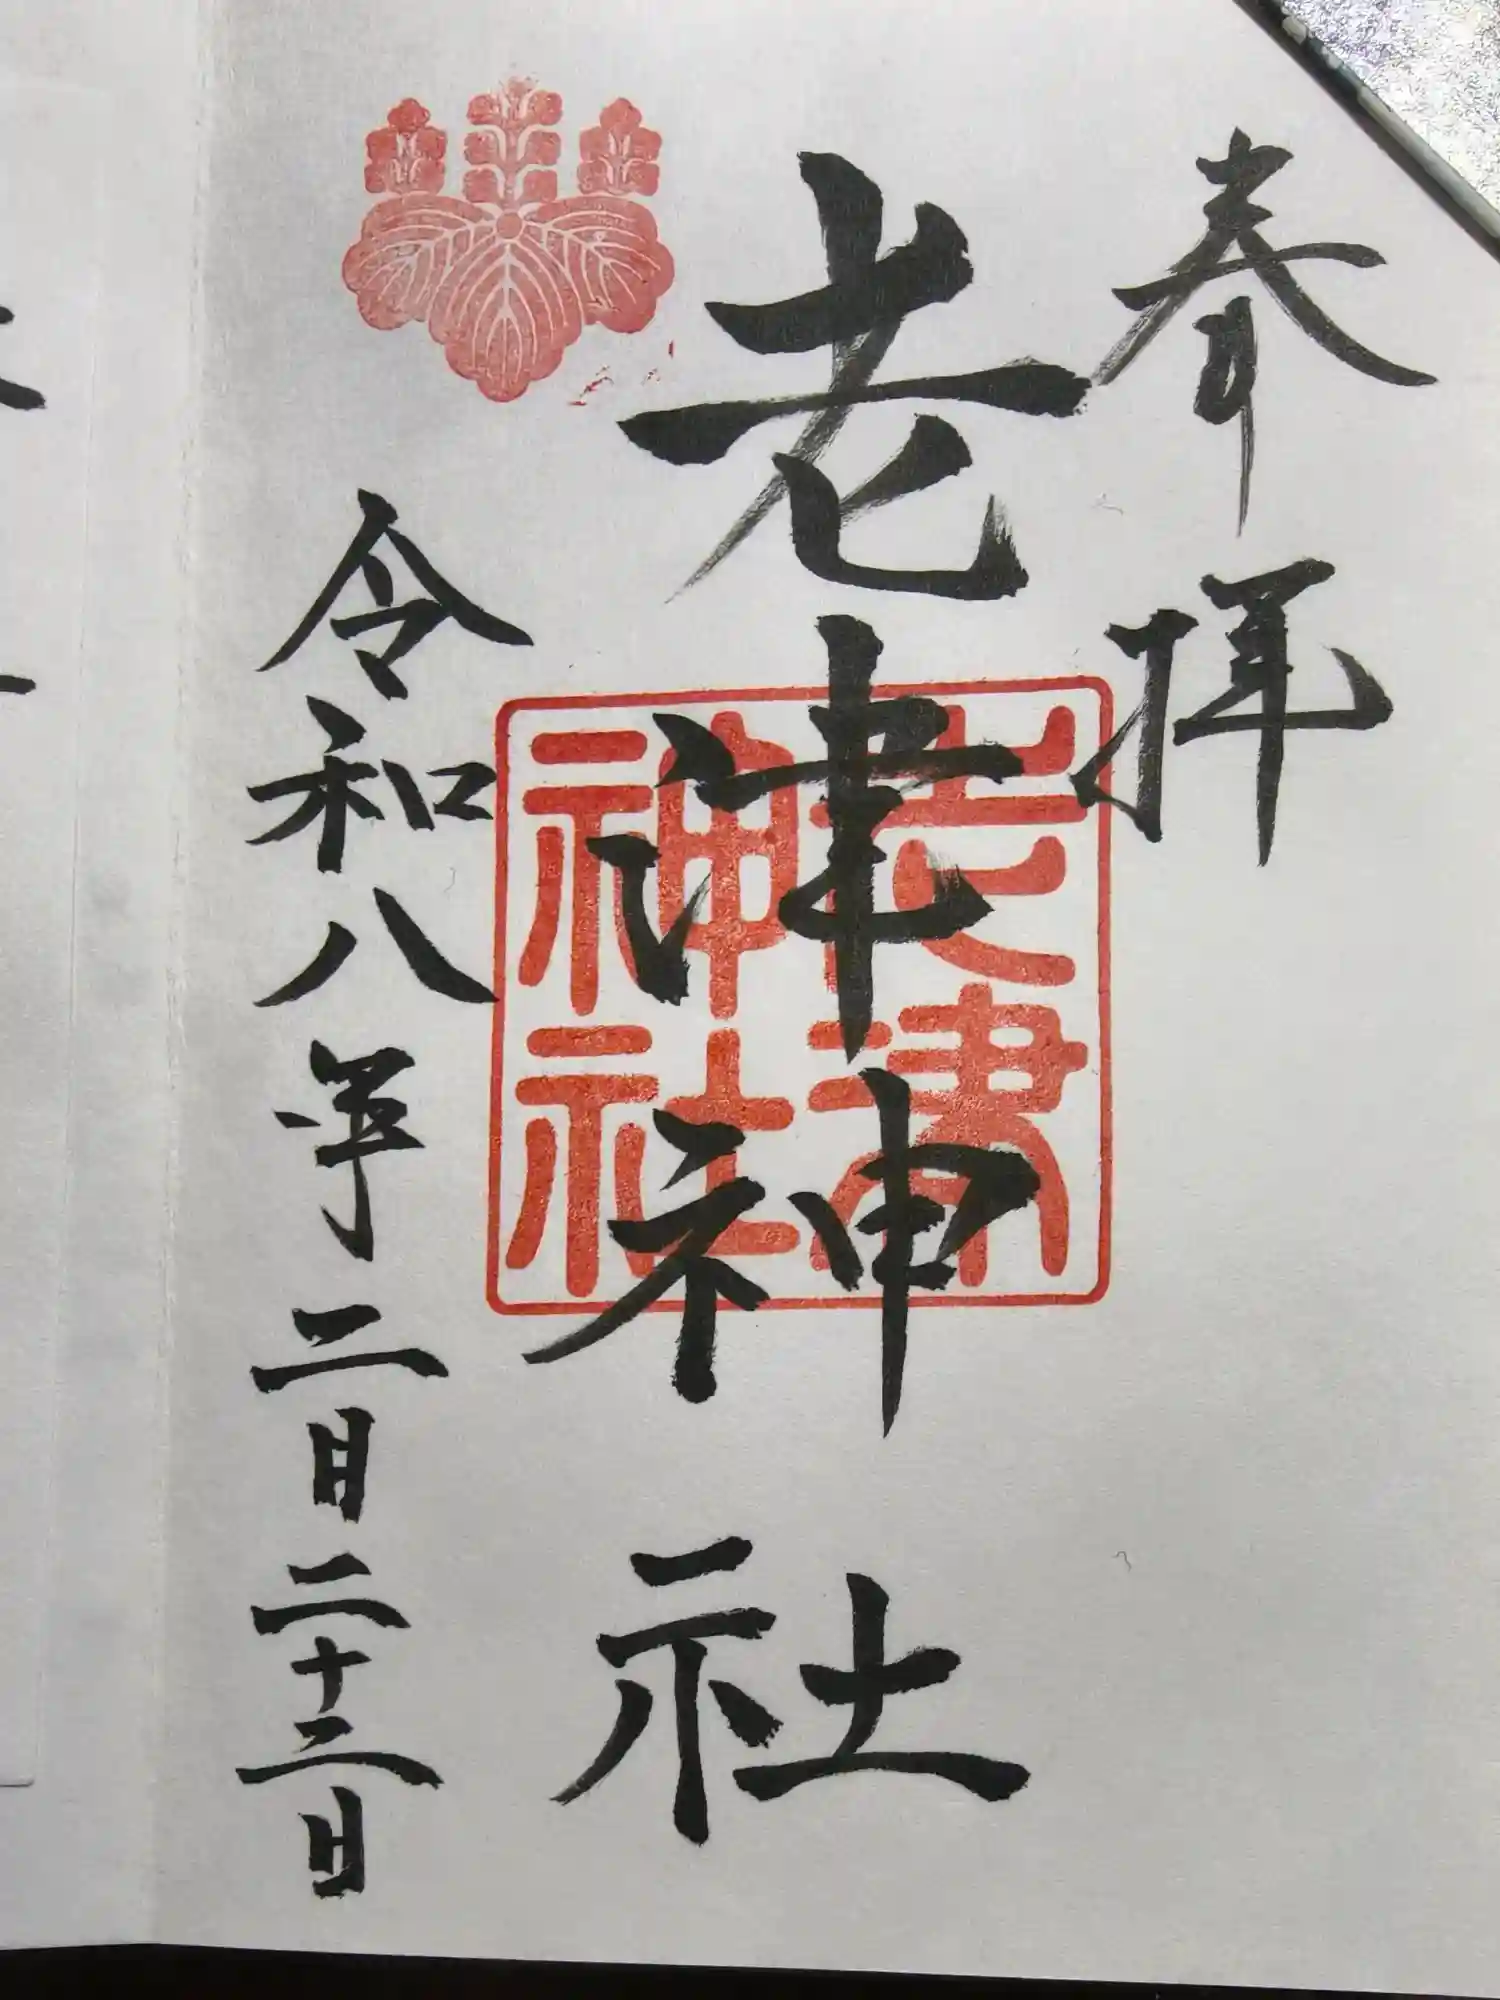 奉拝
老津神社
老津神社
令和八年二月二十二日